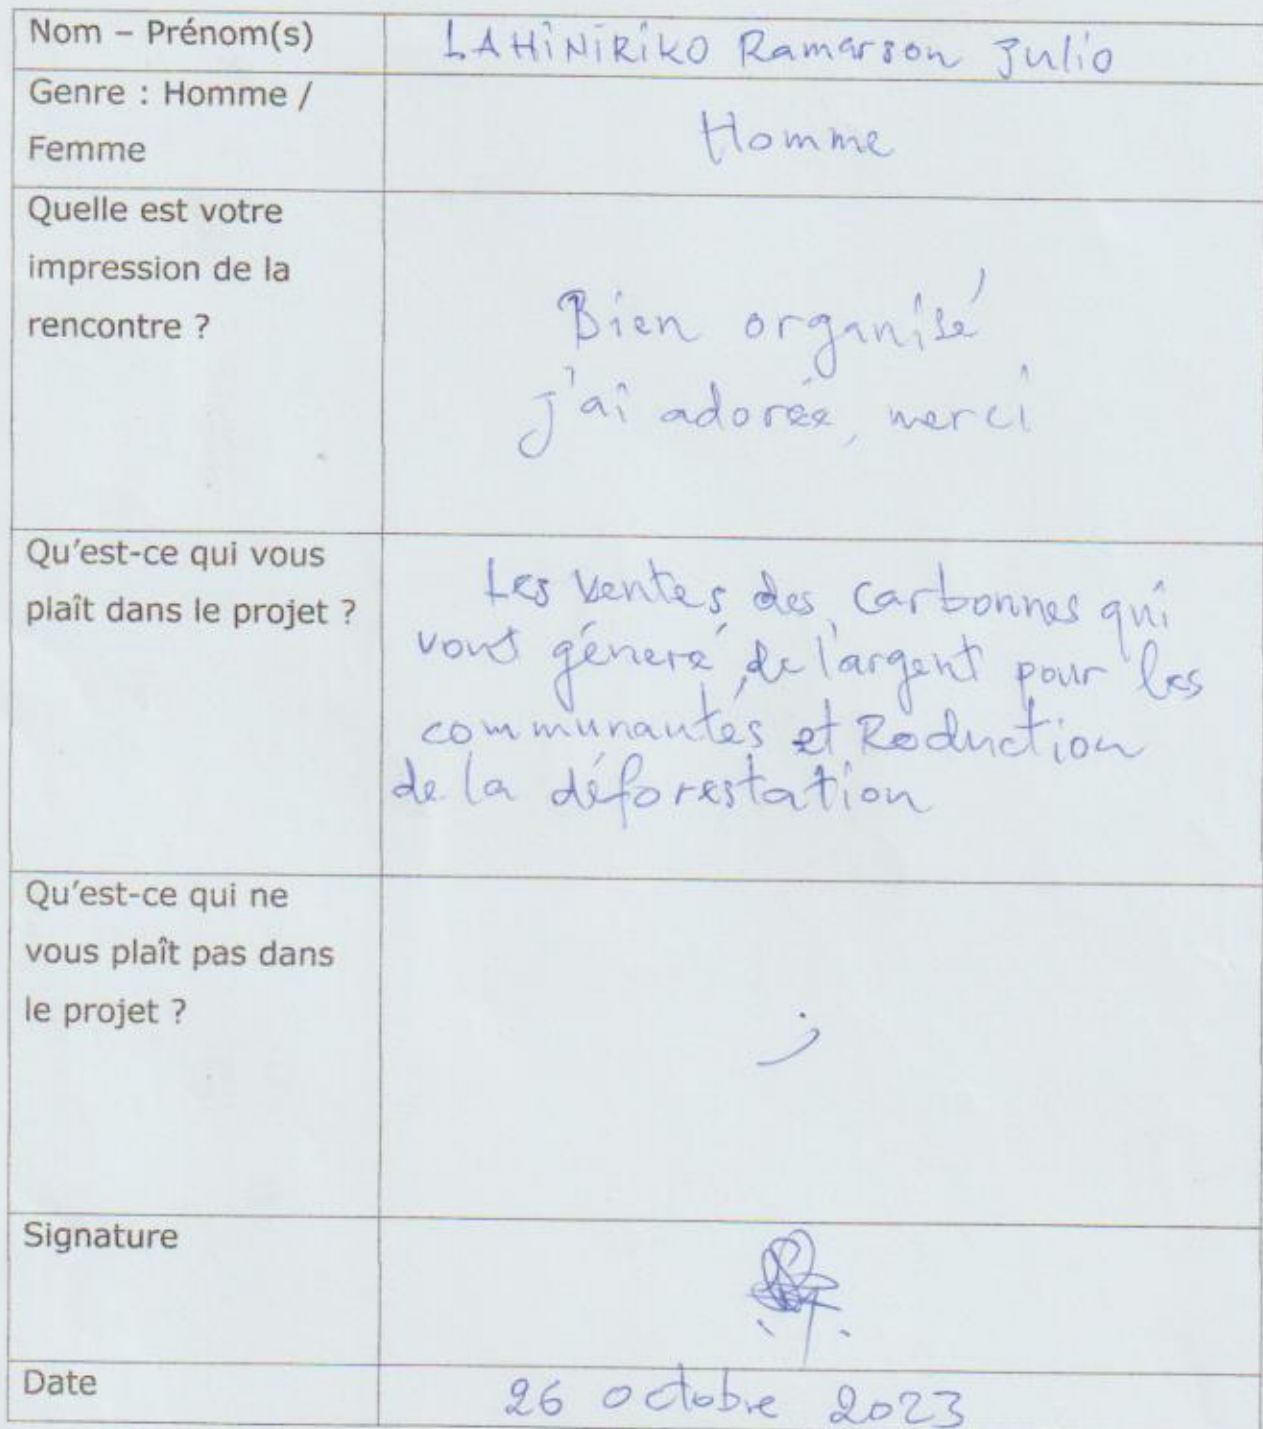 Nom – Prénom(s)
LAHINIRIKO Ramarson Julio
Genre : Homme /
Femme
Homme
Quelle est votre
impression de la
rencontre ?
Bien organisé
j'ai adorée, merci
Qu'est-ce qui vous
plaît dans le projet ?
Les ventes des carbonnes qui
vont géneré de l'argent pour les
communautés et Reduction
de la déforestation
Qu'est-ce qui ne
vous plaît pas dans
le projet ?
Signature
Date
26 octobre 2023